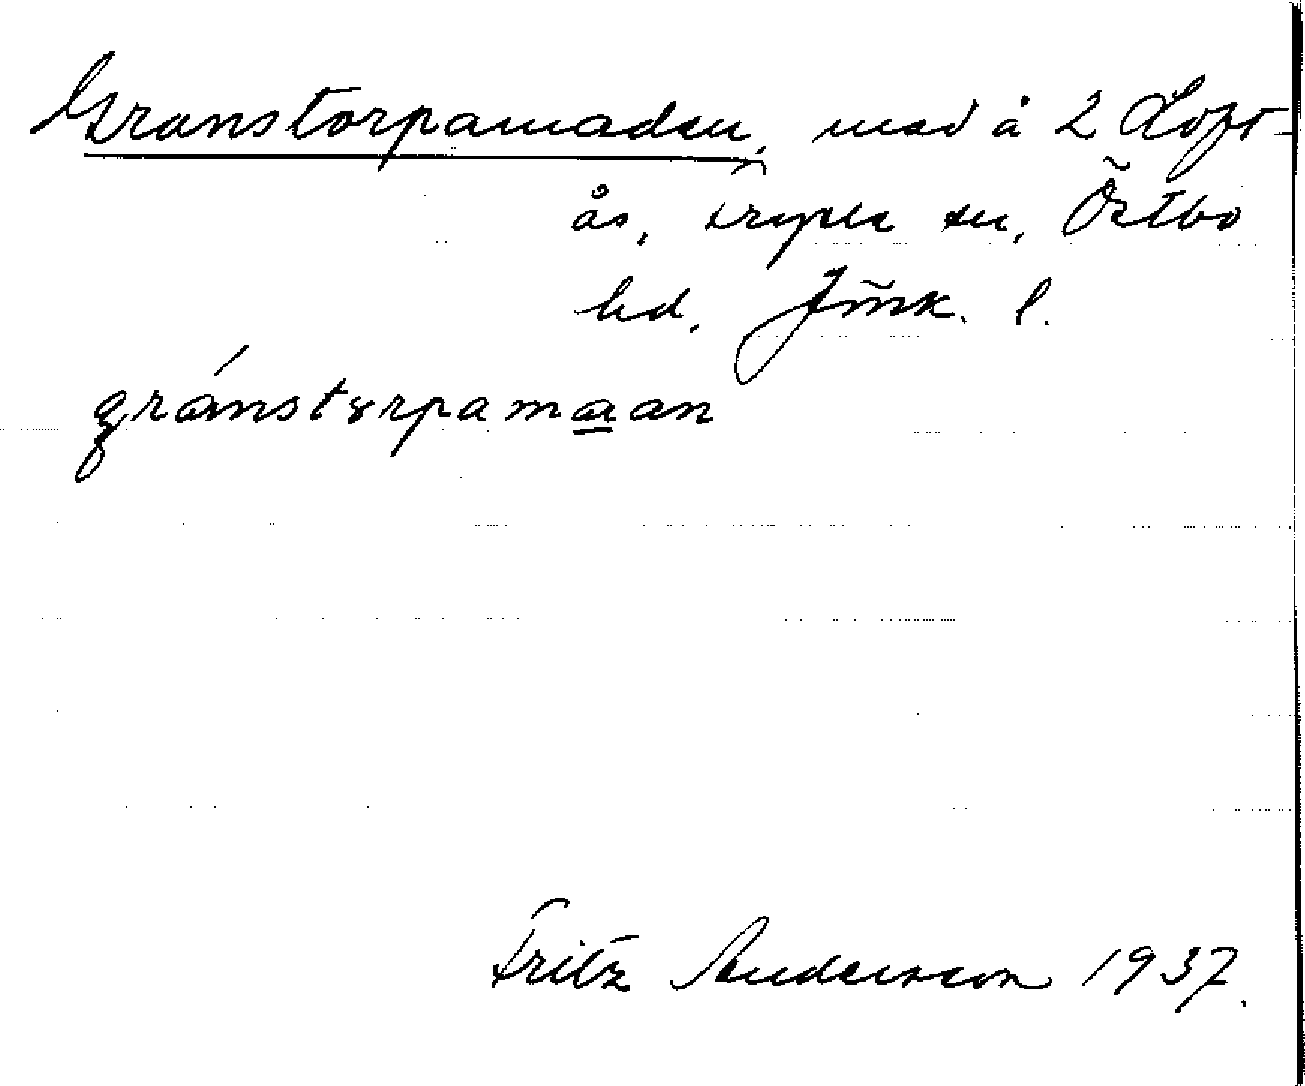 Granstorpamaden, mad å 2 Loft-
ås, Fryele sn, Östbo
hd, Jönk. l.
gránstɤrpamaan
Fritz Andersson 1937.